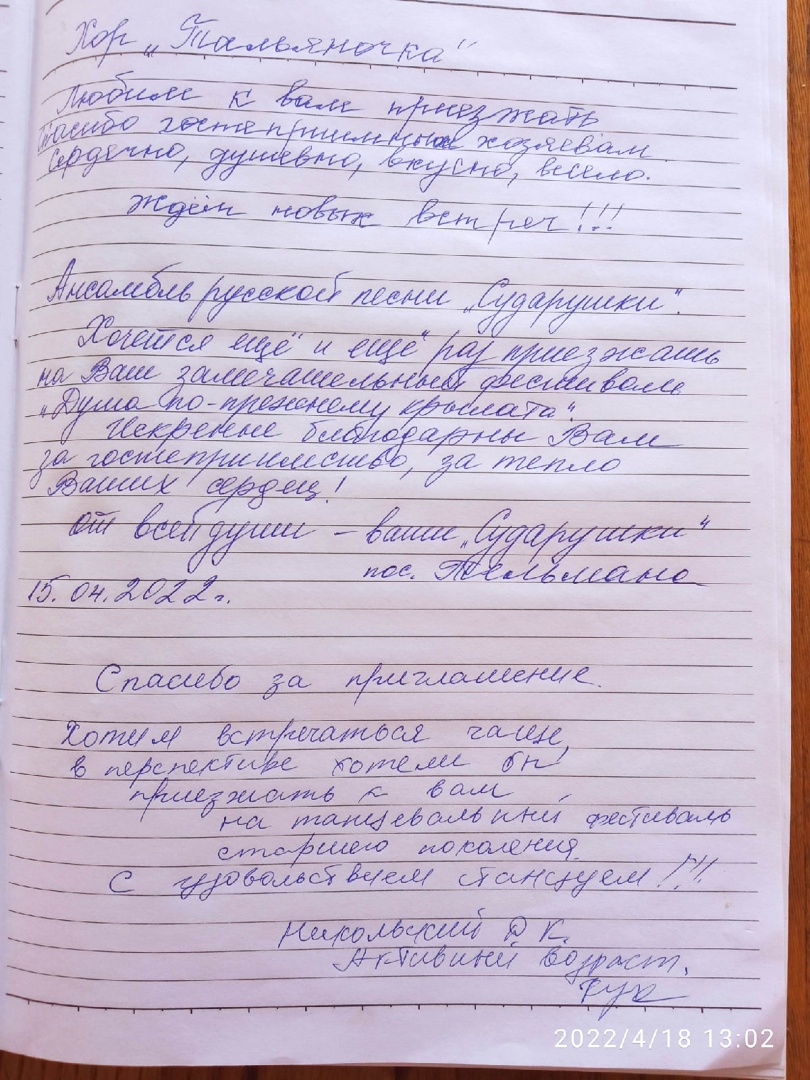 Хор „Тальяночка"
Любим к вам приезжать
Спасибо гостеприимным хозяевам
Сердечно, душевно, вкусно, весело.
Ждём новых встреч!!!
Ансамбль русской песни „Сударушки".
Хочется ещё и ещё раз приезжать
на Ваш замечательный фестиваль
„Душа по-прежнему крылата".
Искренне благодарны Вам
за гостеприимство, за тепло
Ваших сердец!
От всей души – ваши „Сударушки"
пос. Тельмана
15.04.2022г.
Спасибо за приглашение.
Хотим встречаться чаще,
в перспективе хотели бы
приезжать к вам
на танцевальный фестиваль
старшего поколения.
С удовольствием станцуем!!!!
Никольский Д К.
Активный возраст.
2022/4/18 13:02